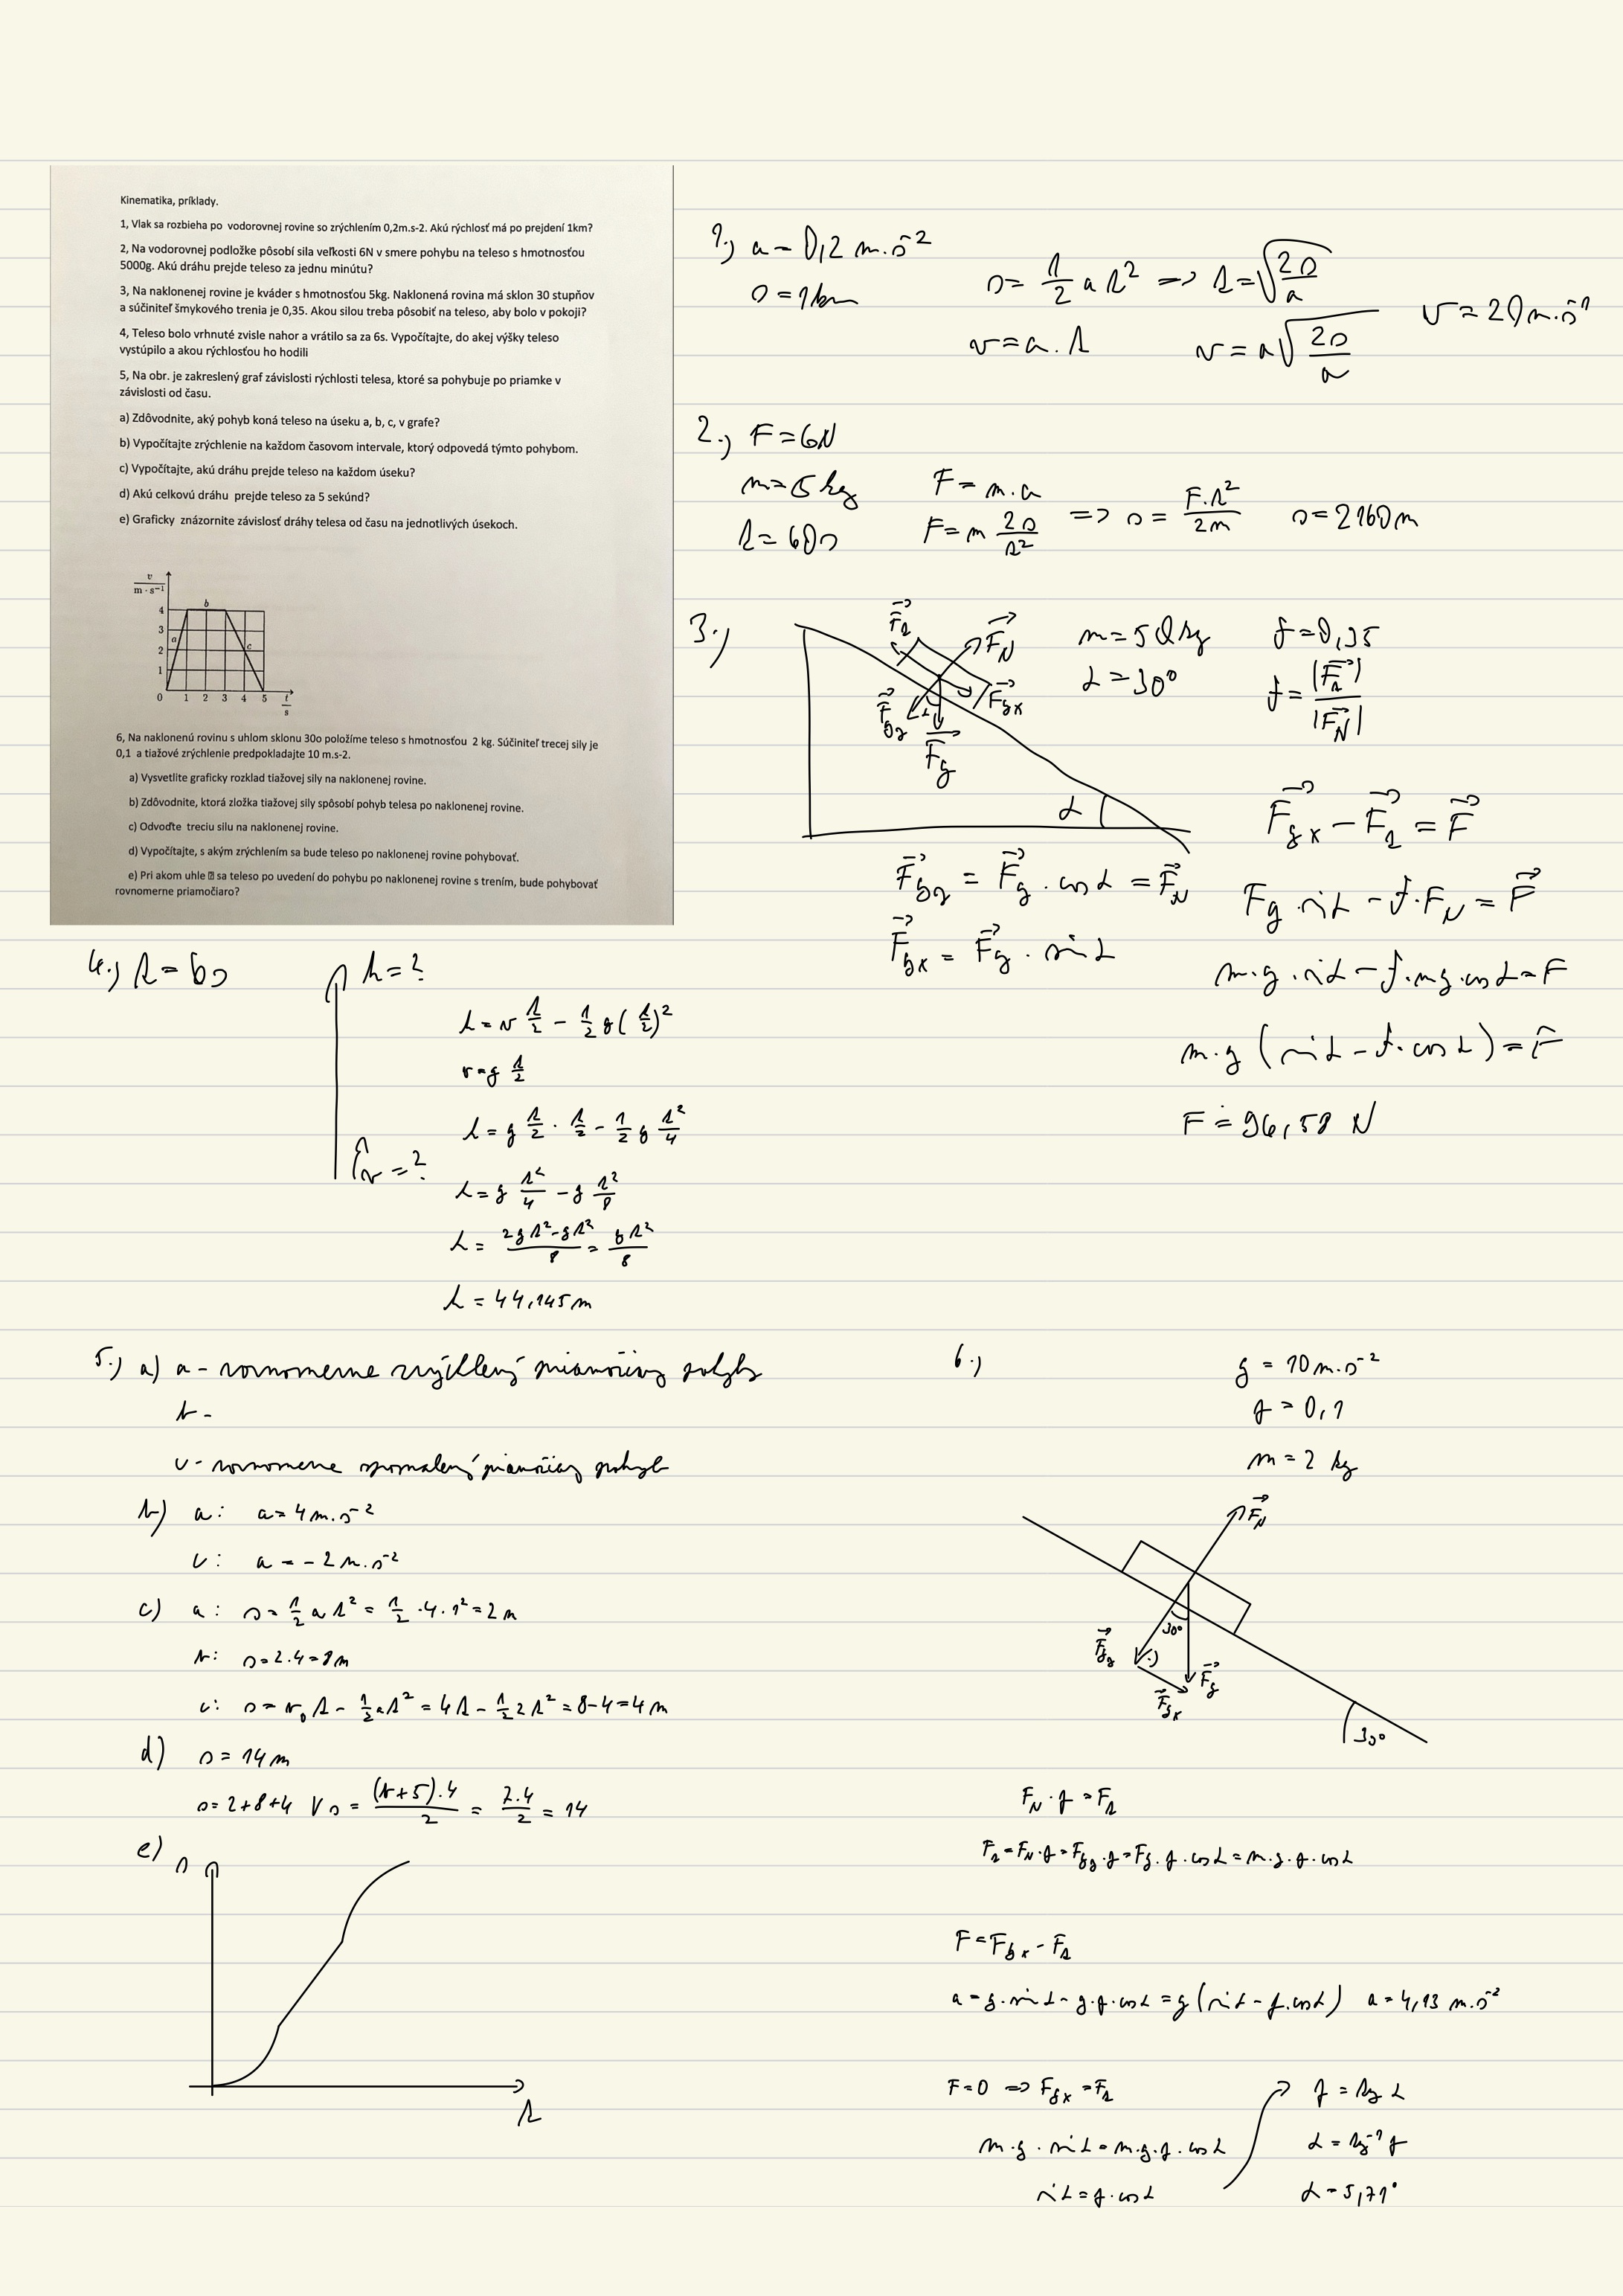 Kinematika, príklady.
1, Vlak sa rozbieha po vodorovnej rovine so zrýchlením 0,2m.s-2. Akú rýchlosť má po prejdení 1km?
2, Na vodorovnej podložke pôsobí sila veľkosti 6N v smere pohybu na teleso s hmotnosťou
5000g. Akú dráhu prejde teleso za jednu minútu?
3, Na naklonenej rovine je kváder s hmotnosťou 5kg. Naklonená rovina má sklon 30 stupňov
a súčiniteľ šmykového trenia je 0,35. Akou silou treba pôsobiť na teleso, aby bolo v pokoji?
4, Teleso bolo vrhnuté zvisle nahor a vrátilo sa za 6s. Vypočítajte, do akej výšky teleso
vystúpilo a akou rýchlosťou ho hodili
5, Na obr. je zakreslený graf závislosti rýchlosti telesa, ktoré sa pohybuje po priamke v
závislosti od času.
a) Zdôvodnite, aký pohyb koná teleso na úseku a, b, c, v grafe?
b) Vypočítajte zrýchlenie na každom časovom intervale, ktorý odpovedá týmto pohybom.
c) Vypočítajte, akú dráhu prejde teleso na každom úseku?
d) Akú celkovú dráhu prejde teleso za 5 sekúnd?
e) Graficky znázornite závislosť dráhy telesa od času na jednotlivých úsekoch.
v
m · s⁻¹
b
4
3
a
c
2
1
0 1 2 3 4 5 t
s
6, Na naklonenú rovinu s uhlom sklonu 30o položíme teleso s hmotnosťou 2 kg. Súčiniteľ trecej sily je
0,1 a tiažové zrýchlenie predpokladajte 10 m.s-2.
a) Vysvetlite graficky rozklad tiažovej sily na naklonenej rovine.
b) Zdôvodnite, ktorá zložka tiažovej sily spôsobí pohyb telesa po naklonenej rovine.
c) Odvoďte treciu silu na naklonenej rovine.
d) Vypočítajte, s akým zrýchlením sa bude teleso po naklonenej rovine pohybovať.
e) Pri akom uhle sa teleso po uvedení do pohybu po naklonenej rovine s trením, bude pohybovať
rovnomerne priamočiaro?
1.) a = 0,2 m.s⁻²
s = 1km
s = 1/2 a t² => t = √(2s/a)
v = a . t
v = a √(2s/a)
v = 20 m.s⁻¹
2.) F = 6N
m = 5 kg
t = 60s
F = m.a
F = m 2s/t² => s = F.t²/2m
s = 2160m
3.)
Ft
FN
Fgx
Fgy
Fg
α
m = 50 kg
α = 30°
f = 0,35
f = |Ft|/|FN|
Fgy = Fg . cos α = FN
Fgx = Fg . sin α
Fgx − Ft = F
Fg . sin α − f . FN = F
m.g . sin α − f . mg . cos α = F
m.g (sin α − f . cos α) = F
F ≐ 96,58 N
4.) t = 6s
h = ?
v = ?
h = v t/2 − 1/2 g (t/2)²
v = g t/2
h = g t/2 . t/2 − 1/2 g t²/4
h = g t²/4 − g t²/8
h = 2gt²−gt²/8 = gt²/8
h = 44,145m
5.) a) a - rovnomerne zrýchlený priamočiary pohyb
b -
c - rovnomerne spomalený priamočiary pohyb
b) a: a = 4 m.s⁻²
c: a = − 2 m.s⁻²
c) a: s = 1/2 a t² = 1/2 . 4 . 1² = 2 m
b: s = 2.4 = 8m
c: s = v₀ t − 1/2 a t² = 4t − 1/2 2 t² = 8−4 = 4 m
d) s = 14 m
s = 2+8+4 V s = (2+5).4/2 = 7.4/2 = 14
e)
s
t
6.)
g = 10 m.s⁻²
f = 0,1
m = 2 kg
FN
30°
Fgy
Fg
Fgx
30°
FN . f = Ft
Ft = FN . f = Fgy . f = Fg . f . cos α = m . g . f . cos α
F = Fgx − Ft
a = g . sin α − g . f . cos α = g (sin α − f . cos α) a = 4,13 m.s⁻²
F = 0 => Fgx = Ft
m . g . sin α = m . g . f . cos α
sin α = f . cos α
f = tg α
α = tg⁻¹ f
α = 5,71°